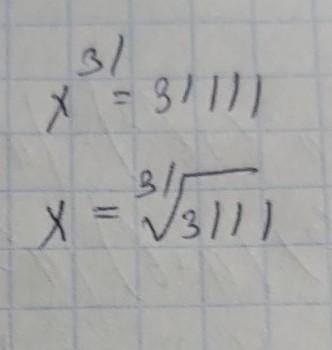 x³¹ = 31111
x = ³¹√3111